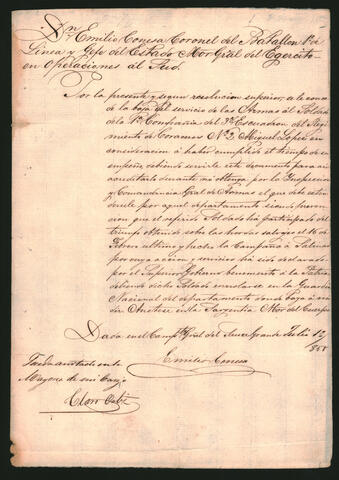 Dn Emilio Conesa Coronel del Batallon 1º de
Linea y Gefe del Estado Mor Gral del Egercito
en Operaciones al Sud.
Por la presente y segun resolucion superior, se le concede
la baja del servicio de las Armas al Soldado
de la 1ª Compañia del 3er Escuadron del Regimiento
de Coraseros Nº 2 Miguel Lopez en
consideracion á haber cumplido el tiempo de su
empeño, debiendo servirle este documento para
acreditarlo durante no obtenga, por la Inspeccion
y Comandancia Gral de Armas el que debe
por aquel departamento siendo prevencion
que el referido Soldado ha participado del
triunfo obtenido sobre las hordas salvajes el 16 de
Febrero ultimo y hecho la Campaña á Salinas
por cuya accion y servicios há sido declarado
por el Superior Gobierno benemerito á la Patria
debiendo dicho Soldado enrolarse en la Guardia
Nacional del departamento donde baya á residir
Anotese en la Sargentia Mor del Cuerpo
Dada en el Campto Gral del Sauce Grande Julio 12/858
Emilio Conesa
Queda anotado en la
Mayoria de mi Cargo